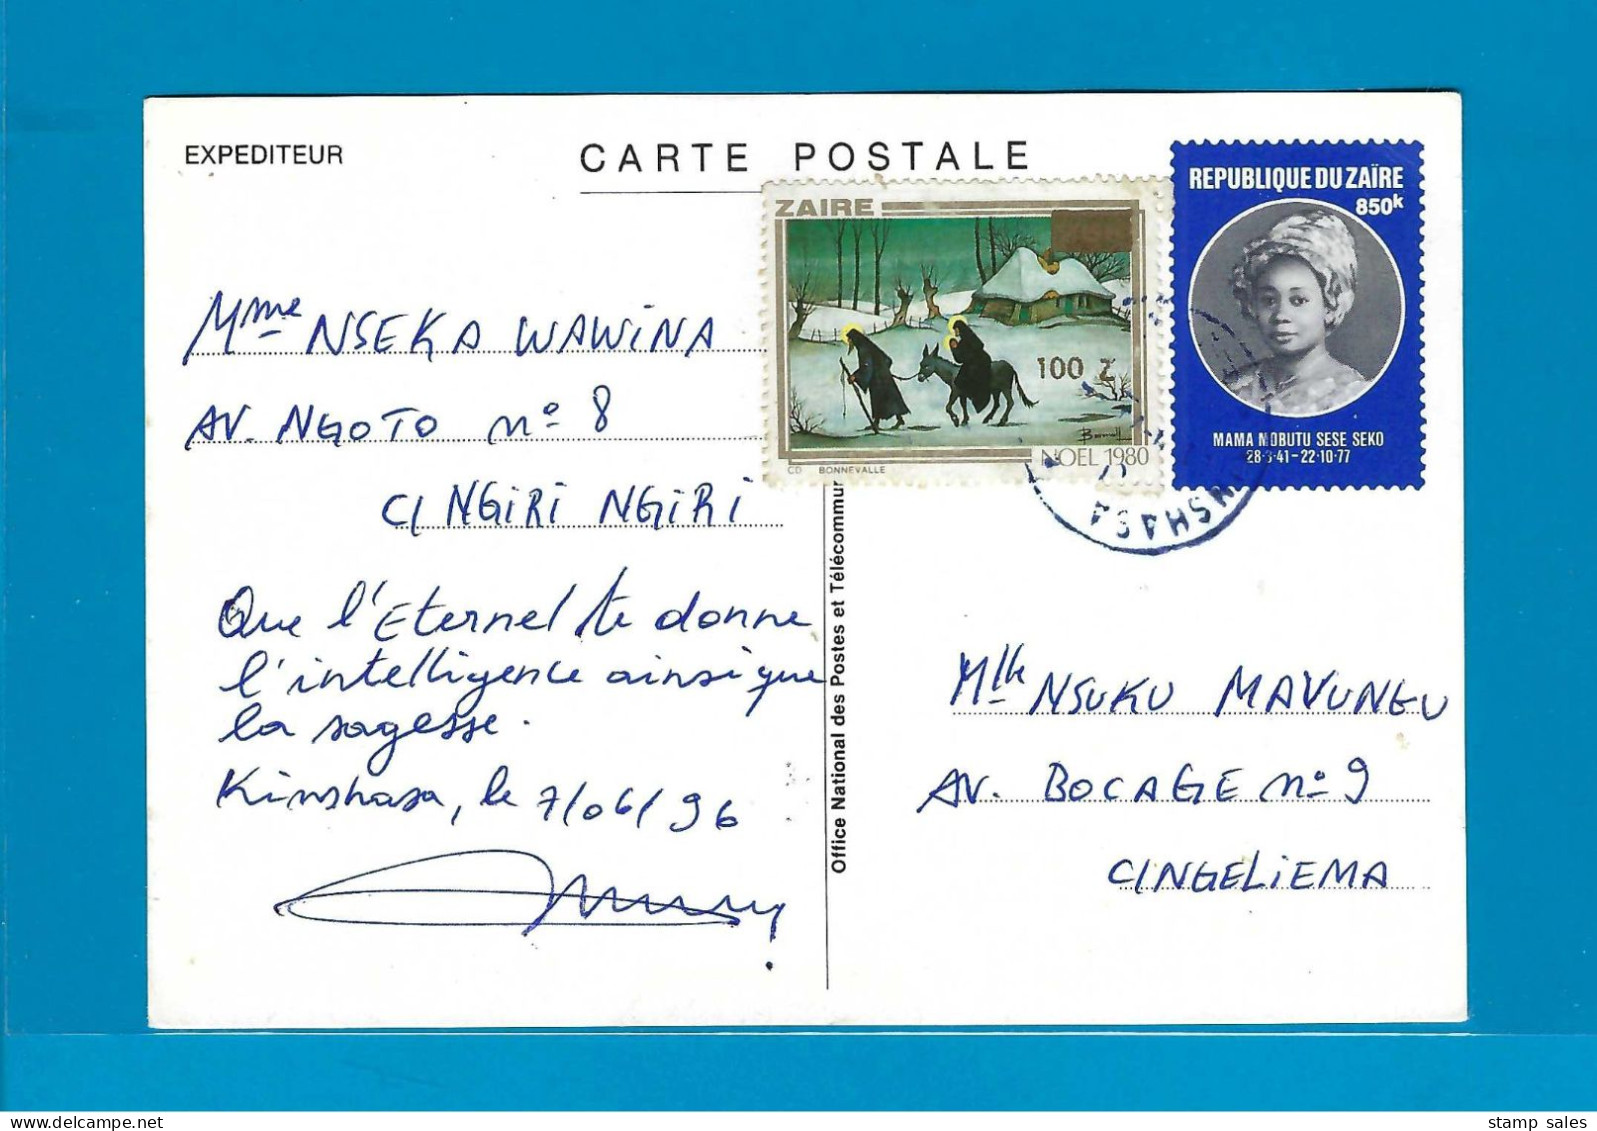 EXPEDITEUR
CARTE POSTALE
ZAIRE
100 Z
NOEL 1980
CD BONNEVALLE
REPUBLIQUE DU ZAÏRE
850k
MAMA MOBUTU SESE SEKO
28·3·41-22·10·77
Mme NSEKA WAWINA
AV. NGOTO no 8
C/ NGIRI NGIRI
Que l'Eternel te donne
l'intelligence ainsi que
la sagesse.
Kinshasa, le 7/06/96
Office National des Postes et Télécommun
Mlle NSUKU MAVUNGU
AV. BOCAGE no 9
C/NGELIEMA
stamp sales